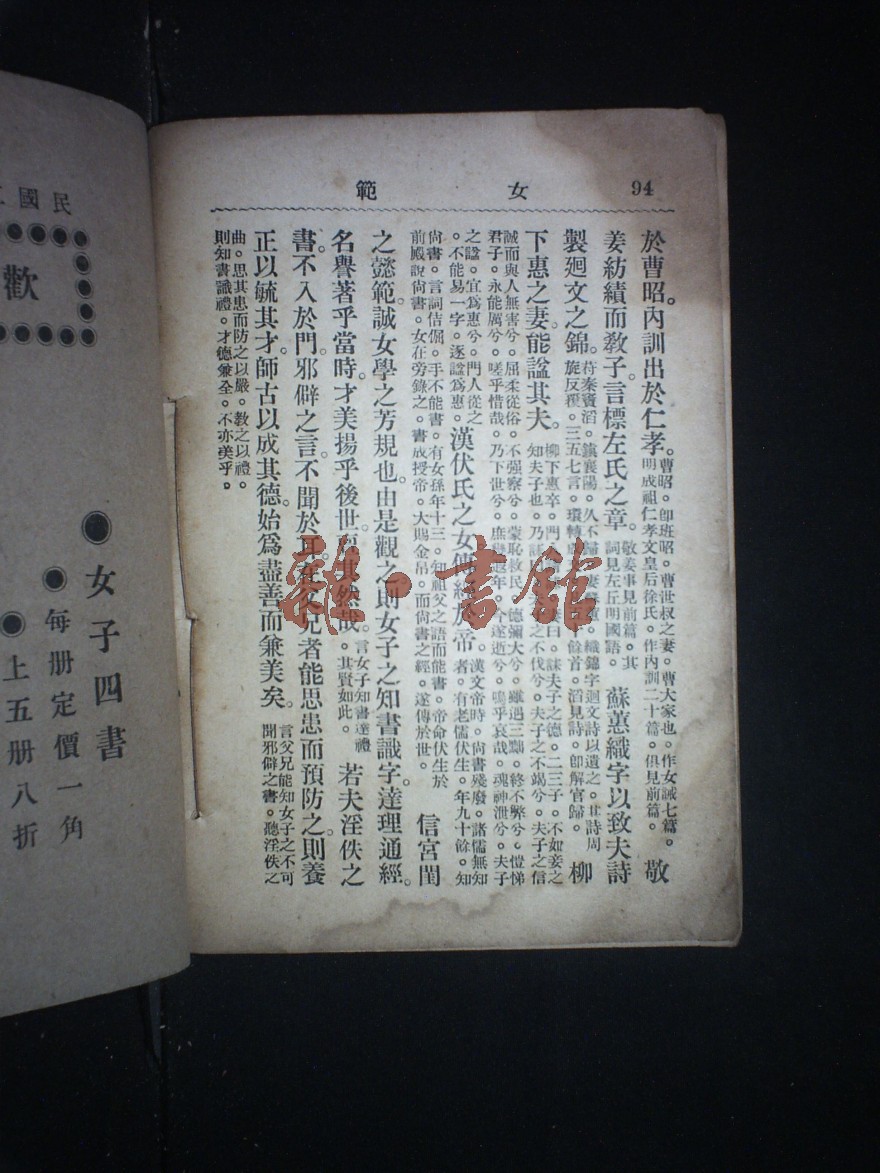 女範
94
於曹昭。內訓出於仁孝。曹昭。卽班昭。曹世叔之妻。曹大家也。作女誡七篇。明成祖仁孝文皇后徐氏。作內訓二十篇。俱見前篇。敬
姜紡績而敎子。言標左氏之章。敬姜事見前篇。其詞見左丘明國語。蘇蕙織字以致夫詩
製廻文之錦。苻秦竇滔。鎭襄陽。久不歸。織錦字迴文詩以遺之。其詩周旋反覆。三五七言。餘首。滔見詩。卽解官歸。柳
下惠之妻。能諡其夫。柳下惠卒。門曰。誄夫子之德。二三子。不如妾之知夫子也。乃誄之不伐兮。夫子之不竭兮。夫子之信
誠而與人無害兮。屈柔從俗。不强察兮。蒙恥救民。德彌大兮。雖遇三黜。終不弊兮。愷悌
君子。永能厲兮。嗟乎惜哉。乃下世兮。庶幾遐年。今遂逝兮。嗚乎哀哉。魂神泄兮。夫子
之諡。宜爲惠兮。門人從之。不能易一字。遂諡爲惠。漢伏氏之女。傳經於帝。漢文帝時。尙書殘廢。諸儒無知者。有老儒伏生。年九十餘。知
尙書。言詞佶倔。手不能書。有女孫年十三。知祖父之語而能書。帝命伏生於
前殿說尙書。女在旁錄之。書成授帝。大賜金帛。而尙書之經。遂傳於世。信宮閨
之懿範。誠女學之芳規也。由是觀之。則女子之知書識字。達理通經。
名譽著乎當時。才美揚乎後世。其然哉。言女子知書達禮其賢如此。若夫淫佚之
書。不入於門。邪僻之言。不聞於耳。父兄者能思患而預防之。則養
正以毓其才。師古以成其德。始爲盡善而兼美矣。言父兄能知女子之不可聞邪僻之書。聽淫佚之
曲。思其患而防之以嚴。敎之以禮。
則知書識禮。才德兼全。不亦美乎。
民國
歡
●女子四書
●每册定價一角
●上五册八折
雜·書館